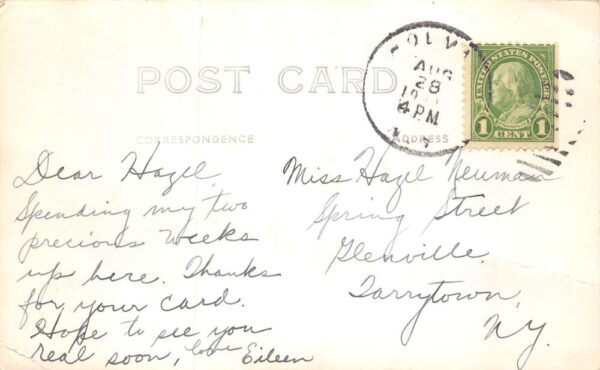 POST CARD
CORRESPONDENCE
ADDRESS
AUG
28
4 PM
N.Y.
UNITED STATES POSTAGE
FRANKLIN
1 CENT 1
Dear Hazel
Spending my two
precious weeks
up here. Thanks
for your card.
Hope to see you
real soon, love Eileen
Miss Hazel Neuman
Spring Street
Glenville,
Tarrytown,
N.Y.